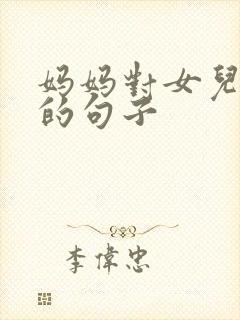 妈妈對女兒
的句子
李偉忠